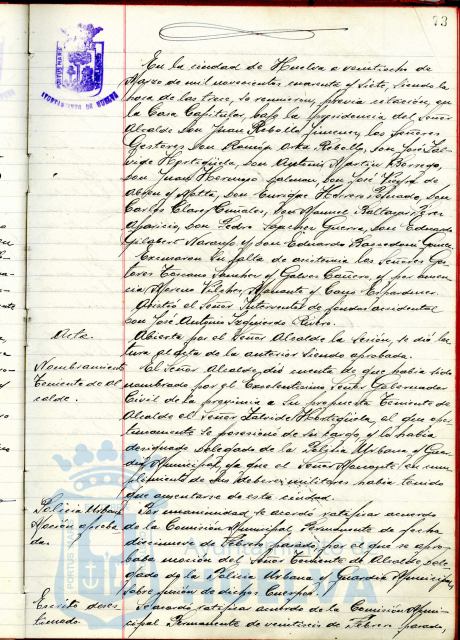 73
AYUNTAMIENTO DE HUELVA
En la ciudad de Huelva a veintiocho de
Marzo de mil novecientos cuarenta y siete, siendo la
hora de las trece, se reunieron, previa citación, en
la Casa Capitular, bajo la presidencia del Señor
Alcalde Don Juan Rebollo Jimenez, los Señores
Gestores Don Orta Rebollo, Don José Zal-
vide Hortigüela, Don Antonio Martín Borrego,
Don Juan Hermoso, Don José de
y Motta, Don Enrique, Don
Carlos, Don Manuel Baltazar
Aparicio, Don Pedro Guerra, Don Eduardo
Gilabert Naranjo y Don Eduardo
Excusaron su falta de asistencia los Señores Ges-
tores Toscano Sanchez y Galvez, y por ausen-
cia Moreno, y
Asistió el Señor Interventor de fondos accidental
Don José Antonio Izquierdo
Acta.
Abierta por el Señor Alcalde la sesión, se dió lec-
tura al acta de la anterior siendo aprobada.
Nombramiento
Teniente de Al
calde.
El Señor Alcalde, dió cuenta de que había sido
nombrado por el Excelentísimo Señor Gobernador
Civil de la provincia a su propuesta Teniente de
Alcalde el Señor Zalvide Hortigüela, al que opor-
tunamente se posesionó de su cargo, y le había
designado Delegado de la Policía Urbana y Guar-
dia Municipal, ya que el Señor en cum-
plimiento de sus deberes militares había tenido
que ausentarse de esta ciudad.
Policía Urbana
Moción aproba
da.
Por unanimidad, se acordó ratificar acuerdo
de la Comisión Municipal Permanente de fecha
diecinueve de Febrero pasado, por el que se apro-
baba moción del Señor Teniente de Alcalde Dele-
gado de la Policía Urbana y Guardia Municipal,
sobre unión de dichos Cuerpos.
Escrito deses
timado.
Se acordó ratificar acuerdo de la Comisión Muni-
cipal Permanente de veintiseis de Febrero pasado,
Ayuntamiento de
HUELVA